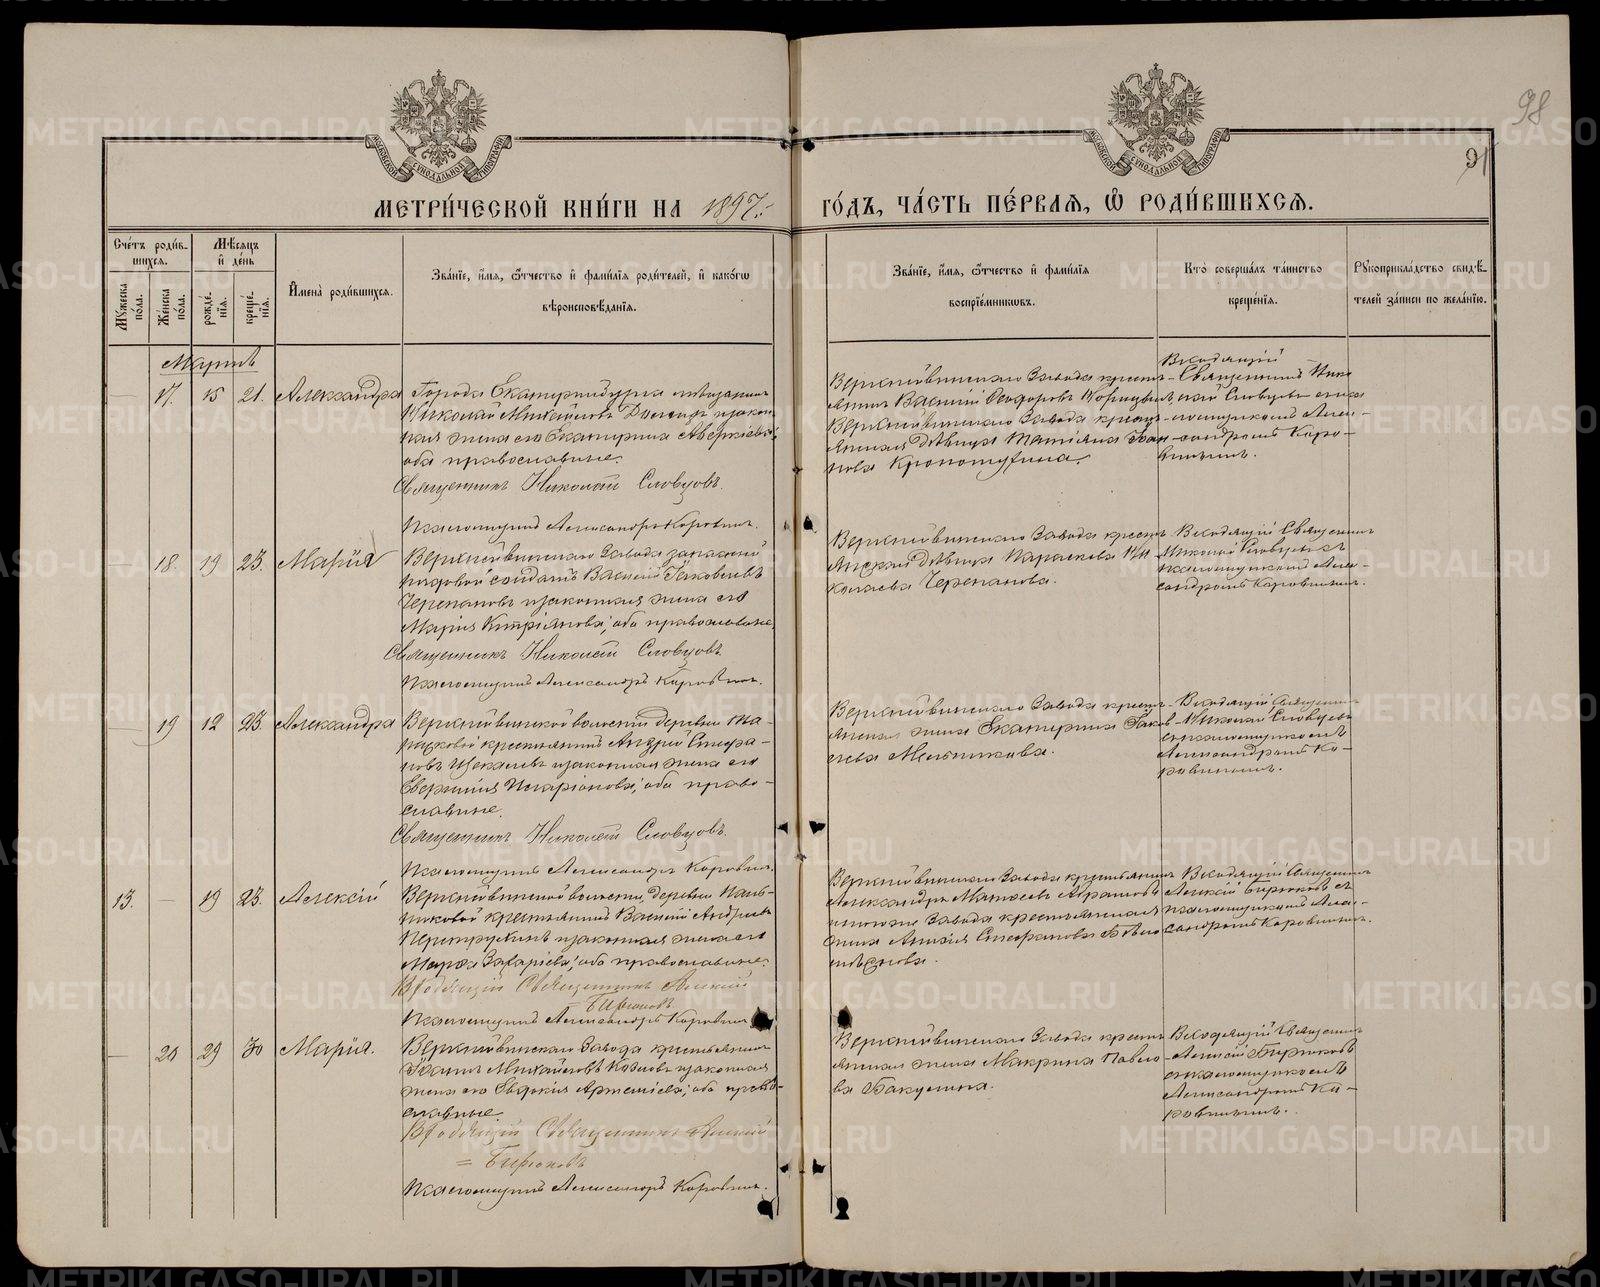 98
91
МОСКОВСКОЙ СѴНОДАЛЬНОЙ ТИПОГРАФІИ
МОСКОВСКОЙ СѴНОДАЛЬНОЙ ТИПОГРАФІИ
МЕТРИ́ЧЕСКОЙ КНИ́ГИ НА 1897. ГО́ДЪ, ЧА́СТЬ ПЕ́РВАЯ, Ѡ҆ РОДИ́ВШИХСЯ.
Сче́тъ роди́в-
шихся.
Мꙋ́жеска по́ла.
Же́нска по́ла.
Мѣ́сяцъ
и҆ де́нь
рожде́нїя.
креще́нїя.
И҆мена̀ роди́вшихся.
Зва́нїе, и҆́мя, ѻ҆́тчество и҆ фами́лїя роди́телей, и҆ како́гѡ
вѣроисповѣ́данїя.
Зва́нїе, и҆́мя, ѻ҆́тчество и҆ фами́лїя
воспрїе́мникѡвъ.
Кто̀ соверша́лъ та́инство
креще́нїя.
Рꙋкоприкла́дство свидѣ́-
телей за́писи по жела́нїю.
Мартъ
— 17. 15 21. Александра
Города Екатеринбурга мѣщанинъ
Николай Михайловъ и закон-
ная жена его Екатерина Аверкіева,
оба православные.
Священникъ Николай Словцовъ.
Псаломщикъ Александръ Коровинъ.
Верхнейвинскаго Завода крестья-
нинъ Василій Ѳеодоровъ
Верхнейвинскаго Завода кресть-
янская дѣвица Татіана Іоан-
нова Кропотухина.
Входящій
Священникъ Нико-
лай Словцовъ съ пса-
ломщикомъ Алек-
сандромъ Коро-
винымъ.
— 18. 19 23. Марія
Верхнейвинскаго Завода запасный
рядовой солдатъ Василій Іаковлевъ
Черепановъ и законная жена его
Марія оба православные.
Священникъ Николай Словцовъ.
Псаломщикъ Александръ Коровинъ.
Верхнейвинскаго Завода кресть-
янская дѣвица Параскева Ни-
колаева Черепанова.
Входящій Священникъ
Николай Словцовъ съ
псаломщикомъ Алек-
сандромъ Коровинымъ.
— 19 12 23. Александра
Верхнейвинской волости деревни Та-
расковой крестьянинъ Андрей Стефа-
новъ и законная жена его
Евгенія Иларіонова, оба право-
славные.
Священникъ Николай Словцовъ.
Псаломщикъ Александръ Коровинъ.
Верхнейвинскаго Завода кресть-
янская жена Екатерина Іаков-
лева Мельникова.
Входящій Священникъ
Николай Словцовъ
съ псаломщикомъ
Александромъ Ко-
ровинымъ.
13. — 19 23. Алексій
Верхнейвинской волости, деревни Паль-
никовой крестьянинъ Василій Андреевъ
и законная жена его
Марѳа Захаріева, оба православные.
Входящій Священникъ Алексій
= Бирюковъ
Псаломщикъ Александръ Коровинъ
Верхнейвинскаго Завода крестьянинъ
Александръ Матѳеевъ Абрамовъ
Завода крестьянская
жена Стефанова
Входящій Священникъ
Алексій Бирюковъ съ
псаломщикомъ Алек-
сандромъ Коровинымъ.
— 20 29 30 Марія.
Верхнейвинскаго Завода крестьянинъ
Іоаннъ Михайловъ и законная
жена его Евдокія Артеміева, оба право-
славные
Входящій Священникъ Алексій
= Бирюковъ
Псаломщикъ Александръ Коровинъ.
Верхнейвинскаго Завода кресть-
янская жена Макрина Павло-
ва Бакулина.
Входящій Священникъ
Алексій Бирюковъ
съ псаломщикомъ
Александромъ Ко-
ровинымъ.
METRIKI.GASO-URAL.RU